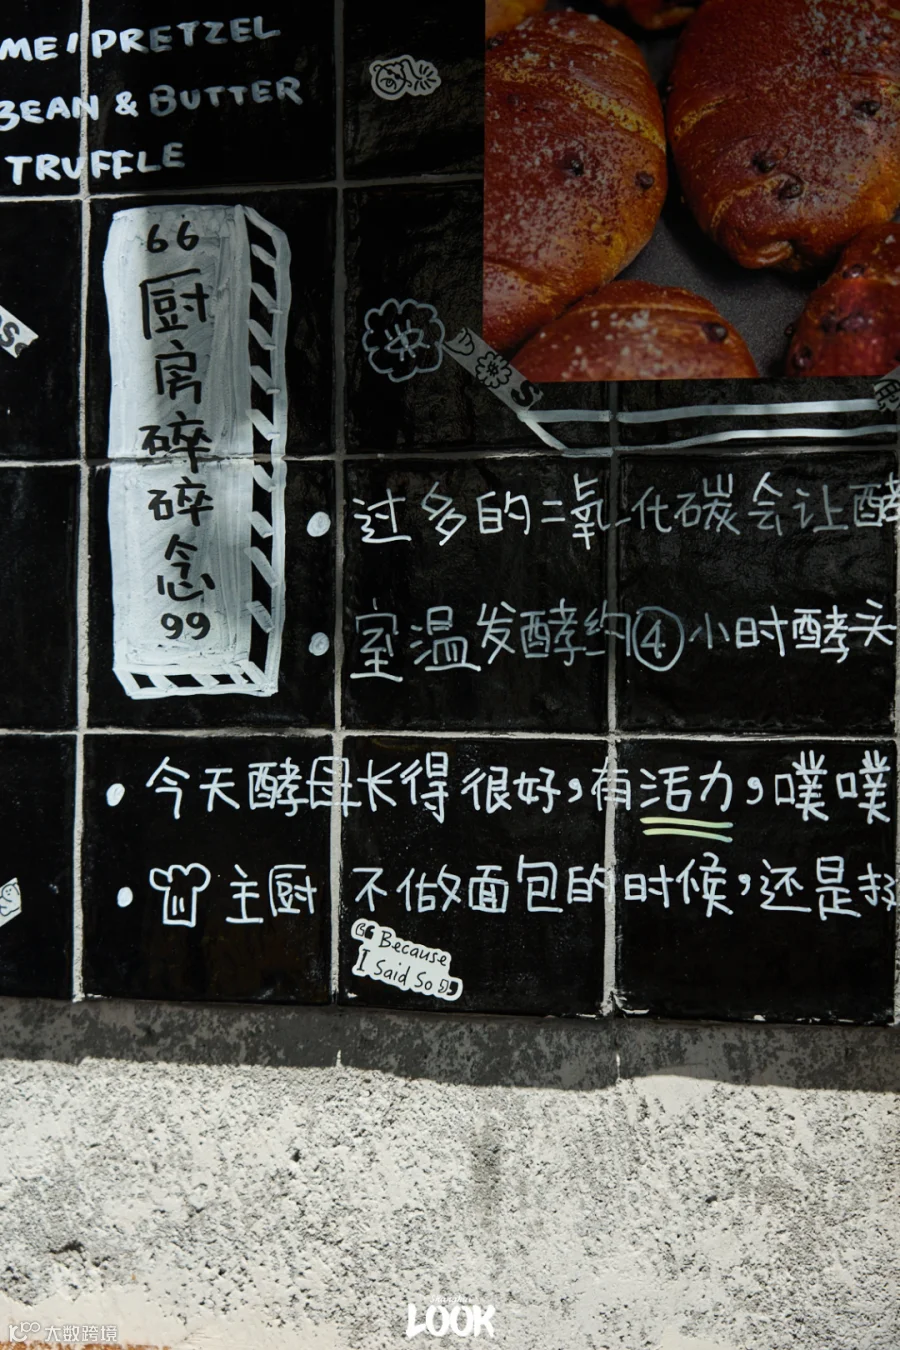 ME/PRETZEL
BEAN & BUTTER
TRUFFLE
“厨房碎碎念”
过多的二氧化碳会让酵
室温发酵约④小时酵头
今天酵母长得很好，有活力，噗噗
主厨不做面包的时候，还是
“Because
I Said So”
LOOK
大数跨境